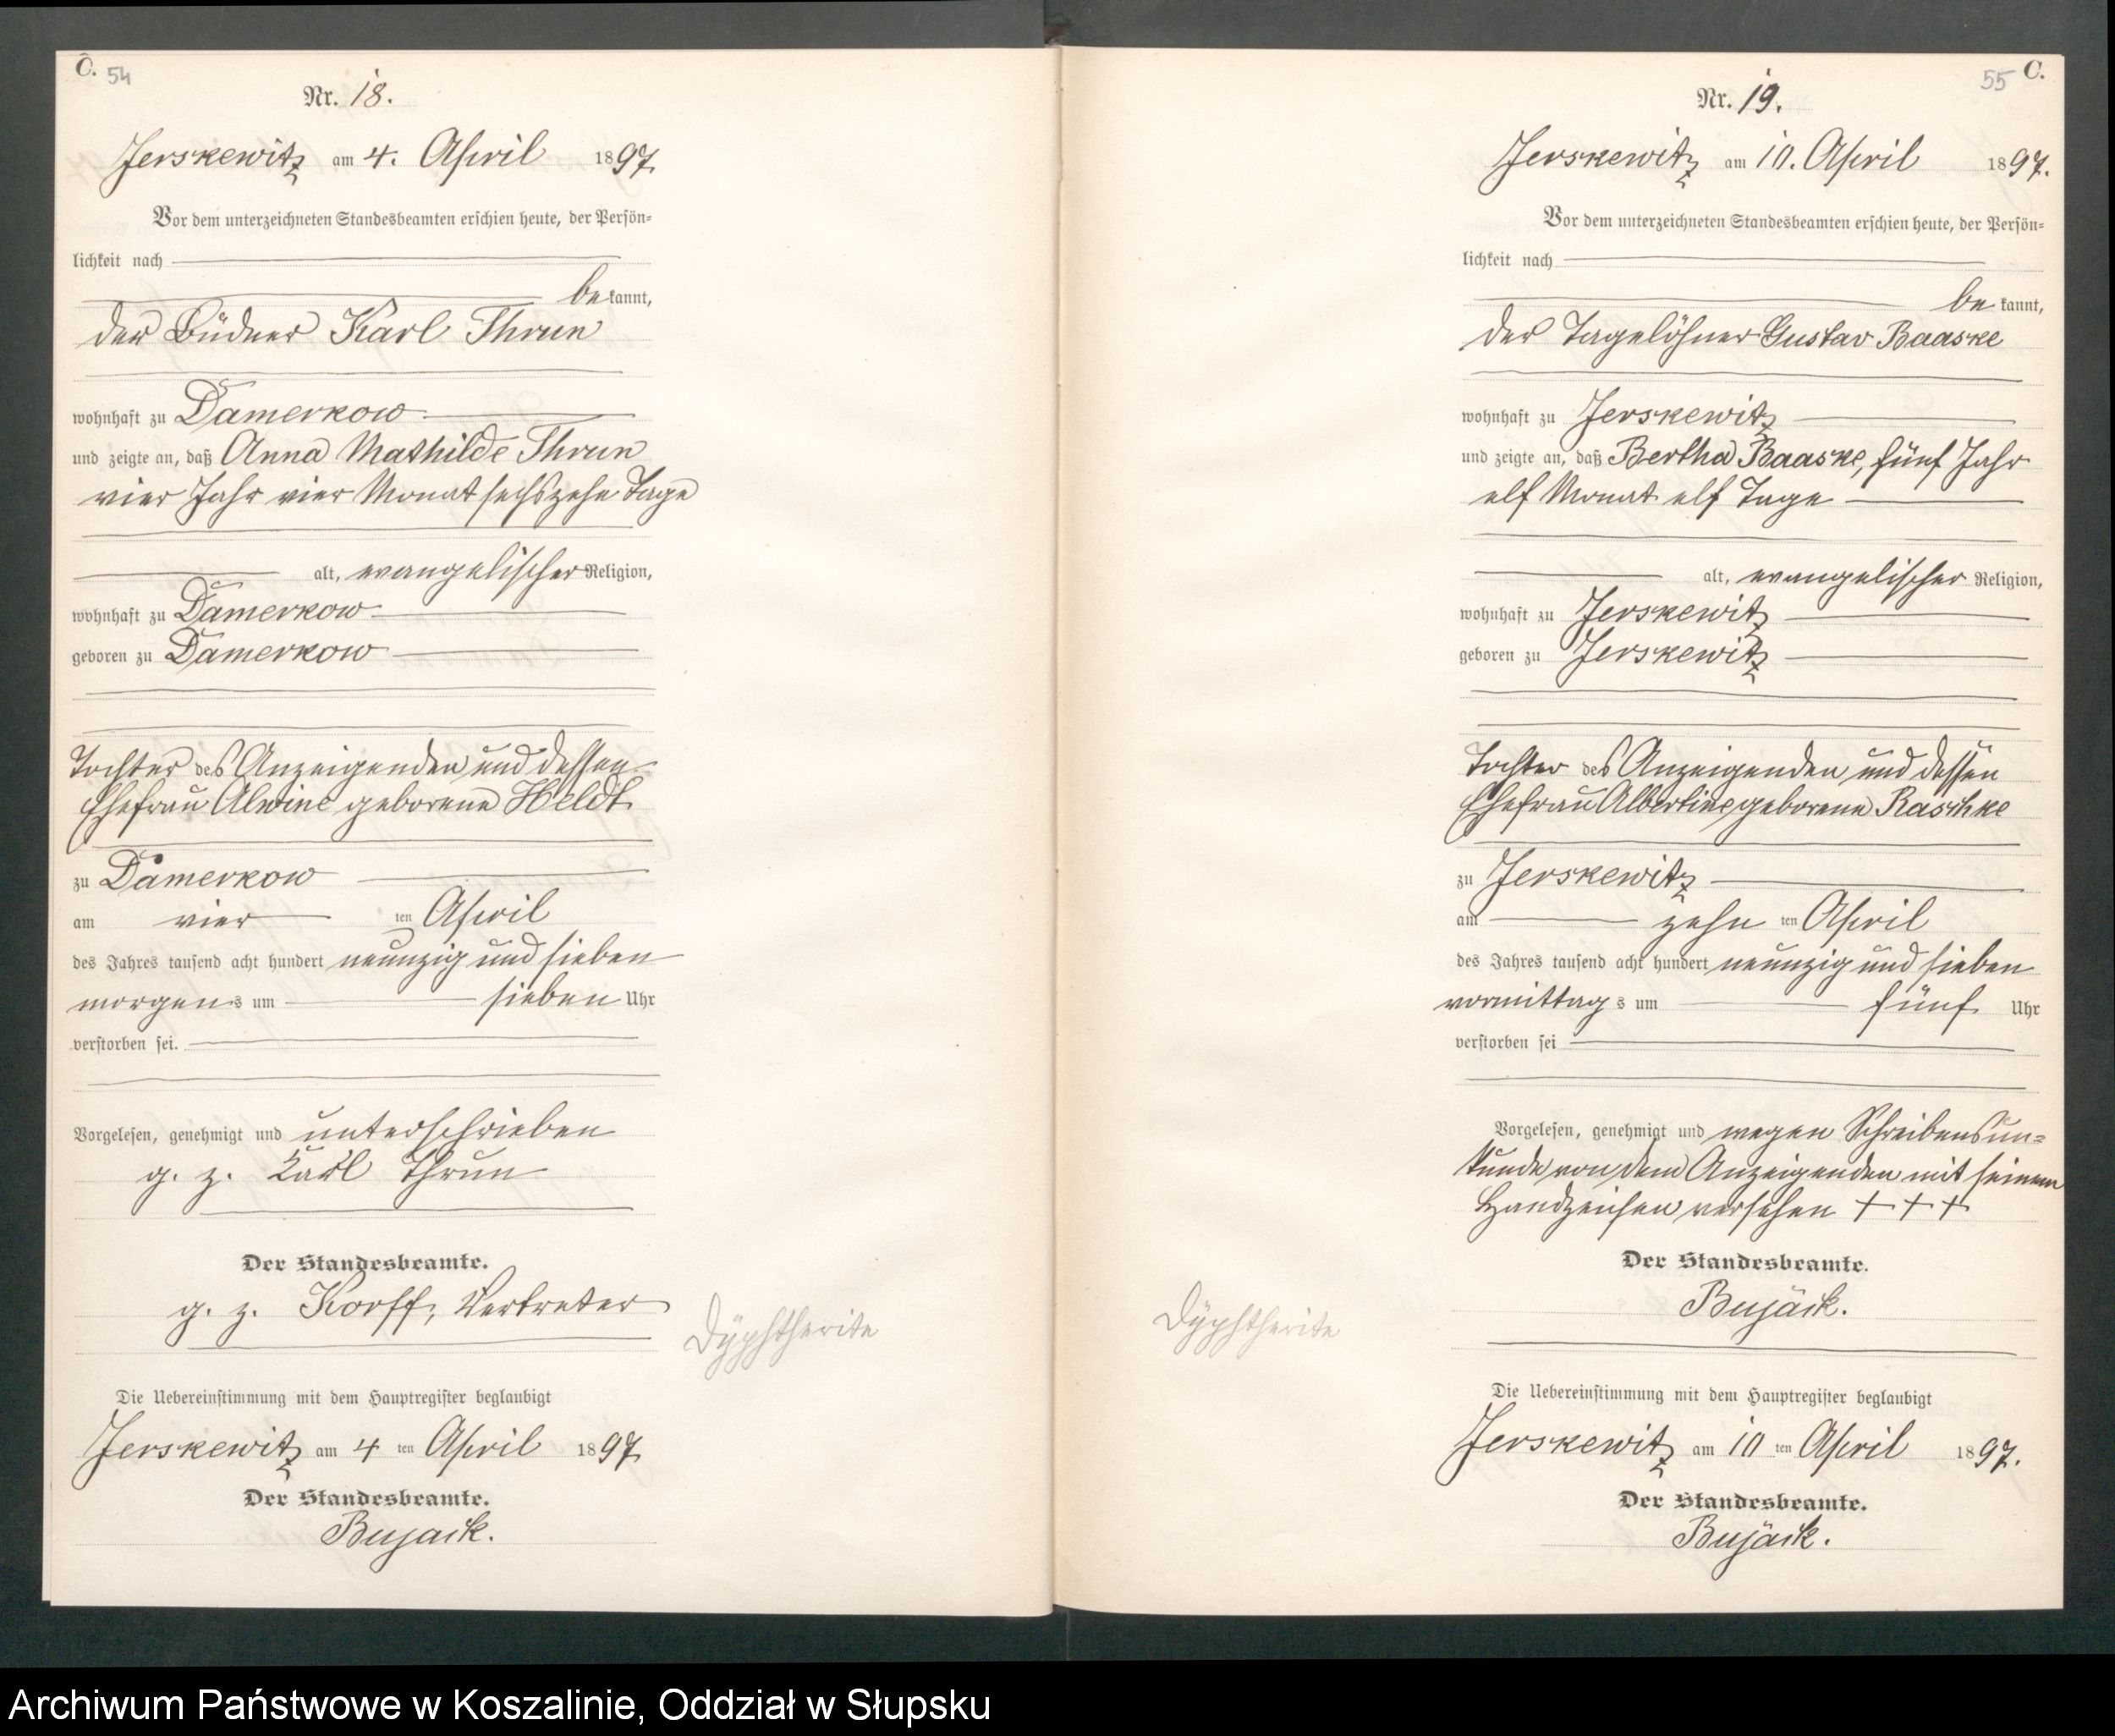 C. 54
Nr. 18.
Jerskewitz am 4. April 1897.
Vor dem unterzeichneten Standesbeamten erschien heute, der Persön-
lichkeit nach
bekannt,
der Büdner Karl Thrun
wohnhaft zu Damerkow
und zeigte an, daß Anna Mathilde Thrun
vier Jahr vier Monat sechszehn Tage
alt, evangelischer Religion,
wohnhaft zu Damerkow
geboren zu Damerkow
Tochter des Anzeigenden und dessen
Ehefrau Alwine geborene Heldt
zu Damerkow
am vier ten April
des Jahres tausend acht hundert neunzig und sieben
morgens um sieben Uhr
verstorben sei.
Vorgelesen, genehmigt und unterschrieben
g. z. Karl Thrun
Der Standesbeamte.
g. z. Korff, Vertreter
Dÿphtherite
Die Uebereinstimmung mit dem Hauptregister beglaubigt
Jerskewitz am 4 ten April 1897.
Der Standesbeamte.
Bujack.
55 C.
Nr. 19.
Jerskewitz am 10. April 1897.
Vor dem unterzeichneten Standesbeamten erschien heute, der Persön-
lichkeit nach
bekannt,
der Tagelöhner Gustav Baaske
wohnhaft zu Jerskewitz
und zeigte an, daß Bertha Baaske, fünf Jahr
elf Monat elf Tage
alt, evangelischer Religion,
wohnhaft zu Jerskewitz
geboren zu Jerskewitz
Tochter des Anzeigenden und dessen
Ehefrau Albertine geborene Raschke
zu Jerskewitz
am zehn ten April
des Jahres tausend acht hundert neunzig und sieben
vormittags um fünf Uhr
verstorben sei
Vorgelesen, genehmigt und wegen Schreibensun-
kunde von dem Anzeigenden mit seinem
Handzeichen versehen + + +
Der Standesbeamte.
Bujack.
Dÿphtherite
Die Uebereinstimmung mit dem Hauptregister beglaubigt
Jerskewitz am 10 ten April 1897.
Der Standesbeamte.
Bujack.
Archiwum Państwowe w Koszalinie, Oddział w Słupsku